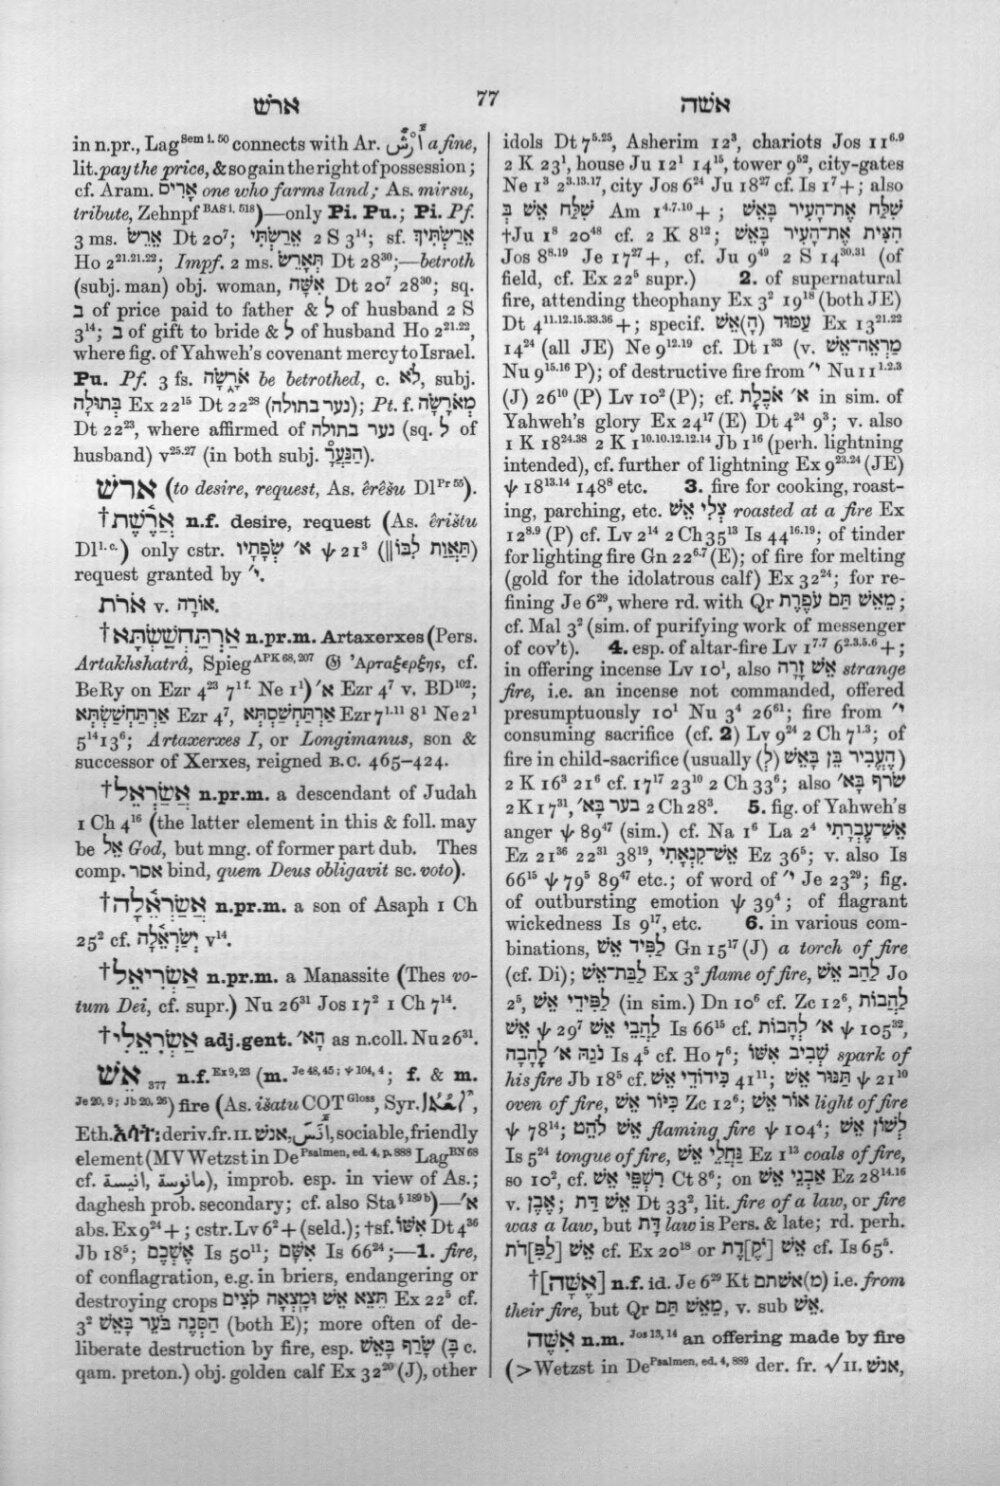 ארשׁ
77
אשׁה
in n.pr., Lag Sem i. 50 connects with Ar. a fine,
lit. pay the price, & so gain the right of possession;
cf. Aram. אָרִים one who farms land; As. mirsu,
tribute, Zehnpf BAS i. 518)—only Pi. Pu.; Pi. Pf.
3 ms. אֵרַשׂ Dt 20⁷; אֵרַשְׂתִּי 2 S 3¹⁴; sf. אֵרַשְׂתִּיךְ
Ho 2²¹·²¹·²²; Impf. 2 ms. תְּאָרֵשׂ Dt 28³⁰;—betroth
(subj. man) obj. woman, אִשָּׁה Dt 20⁷ 28³⁰; sq.
ב of price paid to father & ל of husband 2 S
3¹⁴; ב of gift to bride & ל of husband Ho 2²¹·²²,
where fig. of Yahweh's covenant mercy to Israel.
Pu. Pf. 3 fs. אֹרָשָׂה be betrothed, c. לֹא, subj.
בְּתוּלָה Ex 22¹⁵ Dt 22²⁸ (נער בתולה); Pt. f. מְאֹרָשָׂה
Dt 22²³, where affirmed of נער בתולה (sq. ל of
husband) v²⁵·²⁷ (in both subj. הַנַּעֲרָ).
ארשׁ (to desire, request, As. êrêšu Dl Pr 55).
†אֲרֶשֶׁת n.f. desire, request (As. êrištu
Dl l.c.) only cstr. א׳ שְׂפָתָיו ψ 21³ (‖תַּאֲוַת לִבּוֹ)
request granted by י׳.
אֹרֹת v. אוֹרָה.
†אַרְתַּחְשַׁשְׂתָּא n.pr.m. Artaxerxes (Pers.
Artakhshatrâ, Spieg APK 68, 207 𝔊 Ἀρταξερξης, cf.
BeRy on Ezr 4²³ 7¹ᶠ· Ne 1¹) א׳ Ezr 4⁷ v. BD¹⁰²;
אַרְתַּחְשַׁשְׂתְּא Ezr 4⁷, אַרְתַּחְשַׁסְתְּא Ezr 7¹·¹¹ 8¹ Ne 2¹
5¹⁴ 13⁶; Artaxerxes I, or Longimanus, son &
successor of Xerxes, reigned B.C. 465–424.
†אֲשַׂרְאֵל n.pr.m. a descendant of Judah
1 Ch 4¹⁶ (the latter element in this & foll. may
be אֵל God, but mng. of former part dub. Thes
comp. אסר bind, quem Deus obligavit sc. voto).
†אֲשַׂרְאֵלָה n.pr.m. a son of Asaph 1 Ch
25² cf. יְשַׂרְאֵלָה v¹⁴.
†אַשְׂרִיאֵל n.pr.m. a Manassite (Thes vo-
tum Dei, cf. supr.) Nu 26³¹ Jos 17² 1 Ch 7¹⁴.
†אַשְׂרִאֵלִי adj.gent. הָא׳ as n.coll. Nu 26³¹.
אֵשׁ 377 n.f. Ex 9, 23 (m. Je 48, 45; ψ 104, 4; f. & m.
Je 20, 9; Jb 20, 26) fire (As. išatu COT Gloss, Syr.
Eth. deriv. fr. II. אנשׁ, sociable, friendly
element (MV Wetzst in De Psalmen, ed. 4, p. 888 Lag BN 68
cf. مانوسة, انيسة), improb. esp. in view of As.;
daghesh prob. secondary; cf. also Sta § 189 b)—א׳
abs. Ex 9²⁴ +; cstr. Lv 6² + (seld.); †sf. אִשּׁוֹ Dt 4³⁶
Jb 18⁵; אֶשְׁכֶם Is 50¹¹; אִשָּׁם Is 66²⁴;—1. fire,
of conflagration, e.g. in briers, endangering or
destroying crops תֵּצֵא אֵשׁ וּמָצְאָה קֹצִים Ex 22⁵ cf.
3² הַסְּנֶה בֹּעֵר בָּאֵשׁ (both E); more often of de-
liberate destruction by fire, esp. שָׂרַף בָּאֵשׁ (בָּ c.
qam. preton.) obj. golden calf Ex 32²⁰ (J), other
idols Dt 7⁵·²⁵, Asherim 12³, chariots Jos 11⁶·⁹
2 K 23¹, house Ju 12¹ 14¹⁵, tower 9⁵², city-gates
Ne 1³ 2³·¹³·¹⁷, city Jos 6²⁴ Ju 18²⁷ cf. Is 1⁷ +; also
שִׁלַּח אֵשׁ בְּ Am 1⁴·⁷·¹⁰ +; שִׁלַּח אֶת־הָעִיר בָּאֵשׁ
†Ju 1⁸ 20⁴⁸ cf. 2 K 8¹²; הִצִּית אֶת־הָעִיר בָּאֵשׁ
Jos 8⁸·¹⁹ Je 17²⁷ +, cf. Ju 9⁴⁹ 2 S 14³⁰·³¹ (of
field, cf. Ex 22⁵ supr.) 2. of supernatural
fire, attending theophany Ex 3² 19¹⁸ (both JE)
Dt 4¹¹·¹²·¹⁵·³³·³⁶ +; specif. עַמּוּד (הָ)אֵשׁ Ex 13²¹·²²
14²⁴ (all JE) Ne 9¹²·¹⁹ cf. Dt 1³³ (v. מַרְאֵה־אֵשׁ
Nu 9¹⁵·¹⁶ P); of destructive fire from י׳ Nu 11¹·²·³
(J) 26¹⁰ (P) Lv 10² (P); cf. א׳ אֹכֶלֶת in sim. of
Yahweh's glory Ex 24¹⁷ (E) Dt 4²⁴ 9³; v. also
1 K 18²⁴·³⁸ 2 K 1¹⁰·¹⁰·¹²·¹²·¹⁴ Jb 1¹⁶ (perh. lightning
intended), cf. further of lightning Ex 9²³·²⁴ (JE)
ψ 18¹³·¹⁴ 148⁸ etc. 3. fire for cooking, roast-
ing, parching, etc. צְלִי אֵשׁ roasted at a fire Ex
12⁸·⁹ (P) cf. Lv 2¹⁴ 2 Ch 35¹³ Is 44¹⁶·¹⁹; of tinder
for lighting fire Gn 22⁶·⁷ (E); of fire for melting
(gold for the idolatrous calf) Ex 32²⁴; for re-
fining Je 6²⁹, where rd. with Qr מֵאֵשׁ תַּם עֹפָרֶת;
cf. Mal 3² (sim. of purifying work of messenger
of cov't). 4. esp. of altar-fire Lv 1⁷·⁷ 6²·³·⁵·⁶ +;
in offering incense Lv 10¹, also אֵשׁ זָרָה strange
fire, i.e. an incense not commanded, offered
presumptuously 10¹ Nu 3⁴ 26⁶¹; fire from י׳
consuming sacrifice (cf. 2) Lv 9²⁴ 2 Ch 7¹·³; of
fire in child-sacrifice (usually (לְ) הֶעֱבִיר בֵּן בָּאֵשׁ)
2 K 16³ 21⁶ cf. 17¹⁷ 23¹⁰ 2 Ch 33⁶; also שׂרף בָּא׳
2 K 17³¹, בער בָּא׳ 2 Ch 28³. 5. fig. of Yahweh's
anger ψ 89⁴⁷ (sim.) cf. Na 1⁶ La 2⁴ אֵשׁ־עֶבְרָתִי
Ez 21³⁶ 22³¹ 38¹⁹, אֵשׁ־קִנְאָתִי Ez 36⁵; v. also Is
66¹⁵ ψ 79⁵ 89⁴⁷ etc.; of word of י׳ Je 23²⁹; fig.
of outbursting emotion ψ 39⁴; of flagrant
wickedness Is 9¹⁷, etc. 6. in various com-
binations, לַפִּיד אֵשׁ Gn 15¹⁷ (J) a torch of fire
(cf. Di); לַבַּת־אֵשׁ Ex 3² flame of fire, לַהַב אֵשׁ Jo
2⁵, לַפִּידֵי אֵשׁ (in sim.) Dn 10⁶ cf. Zc 12⁶, לַהֲבוֹת
אֵשׁ ψ 29⁷ לַהֲבֵי אֵשׁ Is 66¹⁵ cf. א׳ לְהָבוֹת ψ 105³²,
נֹגַהּ א׳ לֶהָבָה Is 4⁵ cf. Ho 7⁶; שְׁבִיב אִשּׁוֹ spark of
his fire Jb 18⁵ cf. כִּידוֹדֵי אֵשׁ 41¹¹; תַּנּוּר אֵשׁ ψ 21¹⁰
oven of fire, כִּיּוֹר אֵשׁ Zc 12⁶; אוֹר אֵשׁ light of fire
ψ 78¹⁴; אֵשׁ לֹהֵט flaming fire ψ 104⁴; לְשׁוֹן אֵשׁ
Is 5²⁴ tongue of fire, גַּחֲלֵי אֵשׁ Ez 1¹³ coals of fire,
so 10², cf. רִשְׁפֵּי אֵשׁ Ct 8⁶; on אַבְנֵי אֵשׁ Ez 28¹⁴·¹⁶
v. אֶבֶן; אֵשׁ דָּת Dt 33², lit. fire of a law, or fire
was a law, but דָּת law is Pers. & late; rd. perh.
אֵשׁ [לַפִּ]דֹת cf. Ex 20¹⁸ or אֵשׁ [יֹקֶ]דֶת cf. Is 65⁵.
†[אֶשָּׁה] n.f. id. Je 6²⁹ Kt (מ)אשתם i.e. from
their fire, but Qr מֵאֵשׁ תַּם, v. sub אֵשׁ.
אִשֶּׁה n.m. Jos 13, 14 an offering made by fire
(>Wetzst in De Psalmen, ed. 4, 889 der. fr. √II. אנשׁ,